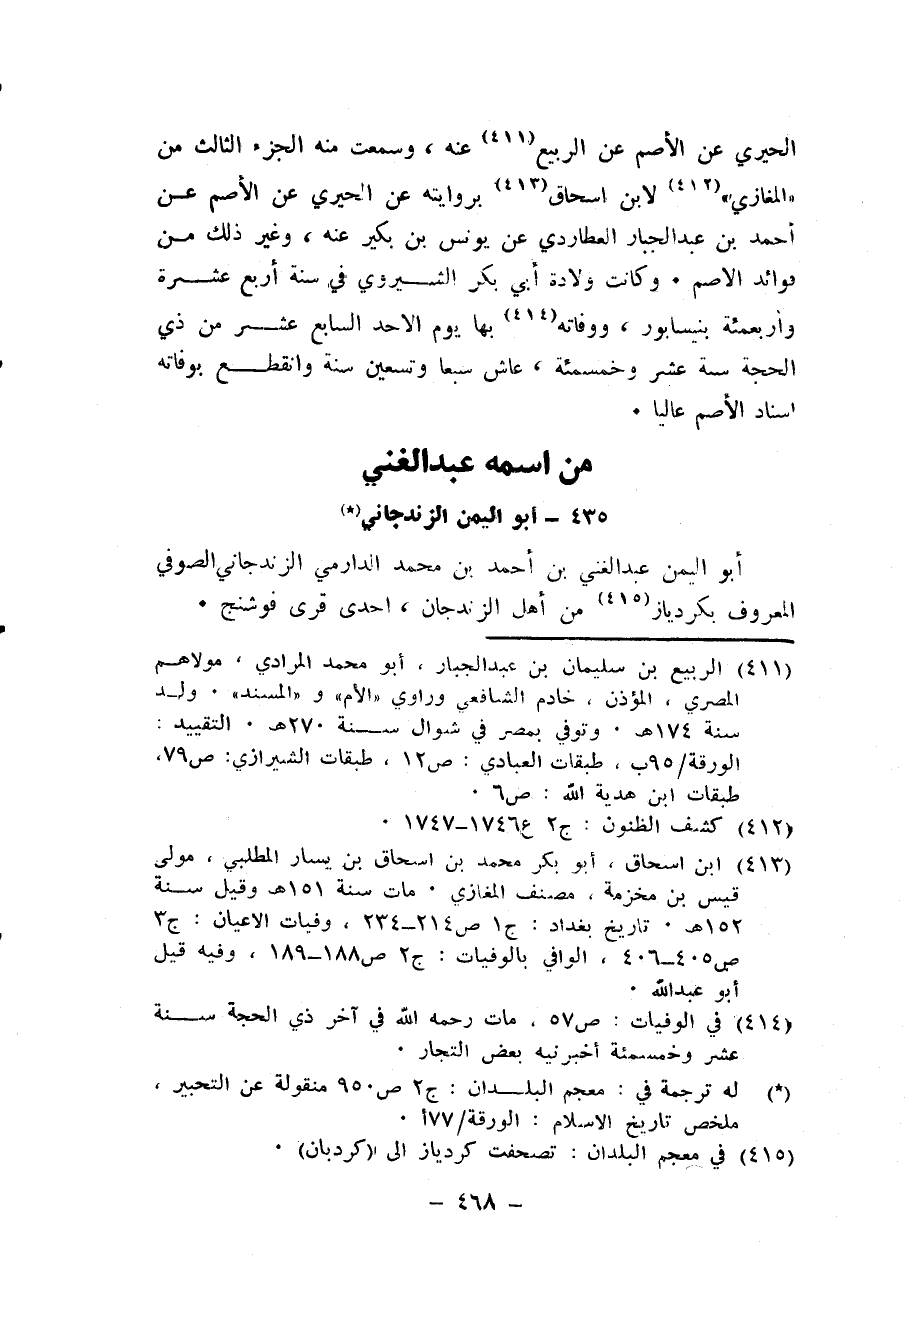 الحيري عن الأصم عن الربيع(٤١١) عنه ، وسمعت منه الجزء الثالث من
«المغازي»(٤١٢) لابن اسحاق(٤١٣) بروايته عن الحيري عن الأصم عـن
أحمد بن عبدالجبار العطاردي عن يونس بن بكير عنه ، وغير ذلك مـن
فوائد الاصم ٠ وكانت ولادة أبي بكر الشـــيروي في سنة أربع عشـــرة
وأربعمئة بنيسابور ، ووفاته(٤١٤) بها يوم الاحد السابع عشـــر من ذي
الحجة سنة عشر وخمسمئة ، عاش سبعا وتسعين سنة وانقطـــع بوفاته
اسناد الأصم عاليا ٠
من اسمه عبدالغني
٤٣٥ ــ أبو اليمن الزندجاني(*)
أبو اليمن عبدالغني بن أحمد بن محمد الدارمي الزندجاني الصوفي
المعروف بكردياز(٤١٥) من أهل الزندجان ، احدى قرى فوشنج ٠
(٤١١) الربيع بن سليمان بن عبدالجبار ، أبو محمد المرادي ، مولاهـم
المصري ، المؤذن ، خادم الشافعي وراوي «الأم» و «المسند» ٠ ولـد
سنة ١٧٤هـ ٠ وتوفي بمصر في شوال ســـنة ٢٧٠هـ ٠ التقييد :
الورقة/٩٥ب ، طبقات العبادي : ص١٢ ، طبقات الشيرازي: ص٧٩،
طبقات ابن هدية الله : ص٦ ٠
(٤١٢) كشف الظنون : ج٢ ع١٧٤٦ــ١٧٤٧ ٠
(٤١٣) ابن اسحاق ، أبو بكر محمد بن اسحاق بن يسار المطلبي ، مولى
قيس بن مخزمة ، مصنف المغازي ٠ مات سنة ١٥١هـ وقيل ســنة
١٥٢هـ ٠ تاريخ بغداد : ج١ ص٢١٤ــ٢٣٤ ، وفيات الاعيان : ج٣
ص٤٠٥ــ٤٠٦ ، الوافي بالوفيات : ج٢ ص١٨٨ــ١٨٩ ، وفيه قيل
أبو عبدالله ٠
(٤١٤) في الوفيات : ص٥٧ ، مات رحمه الله في آخر ذي الحجة ســـنة
عشر وخمسمئة أخبرنيه بعض التجار ٠
(*) له ترجمة في : معجم البلـــدان : ج٢ ص٩٥٠ منقولة عن التحبير ،
ملخص تاريخ الاسلام : الورقة/٧٧أ ٠
(٤١٥) في معجم البلدان : تصحفت كردياز الى (كردبان) ٠
ــ ٤٦٨ ــ